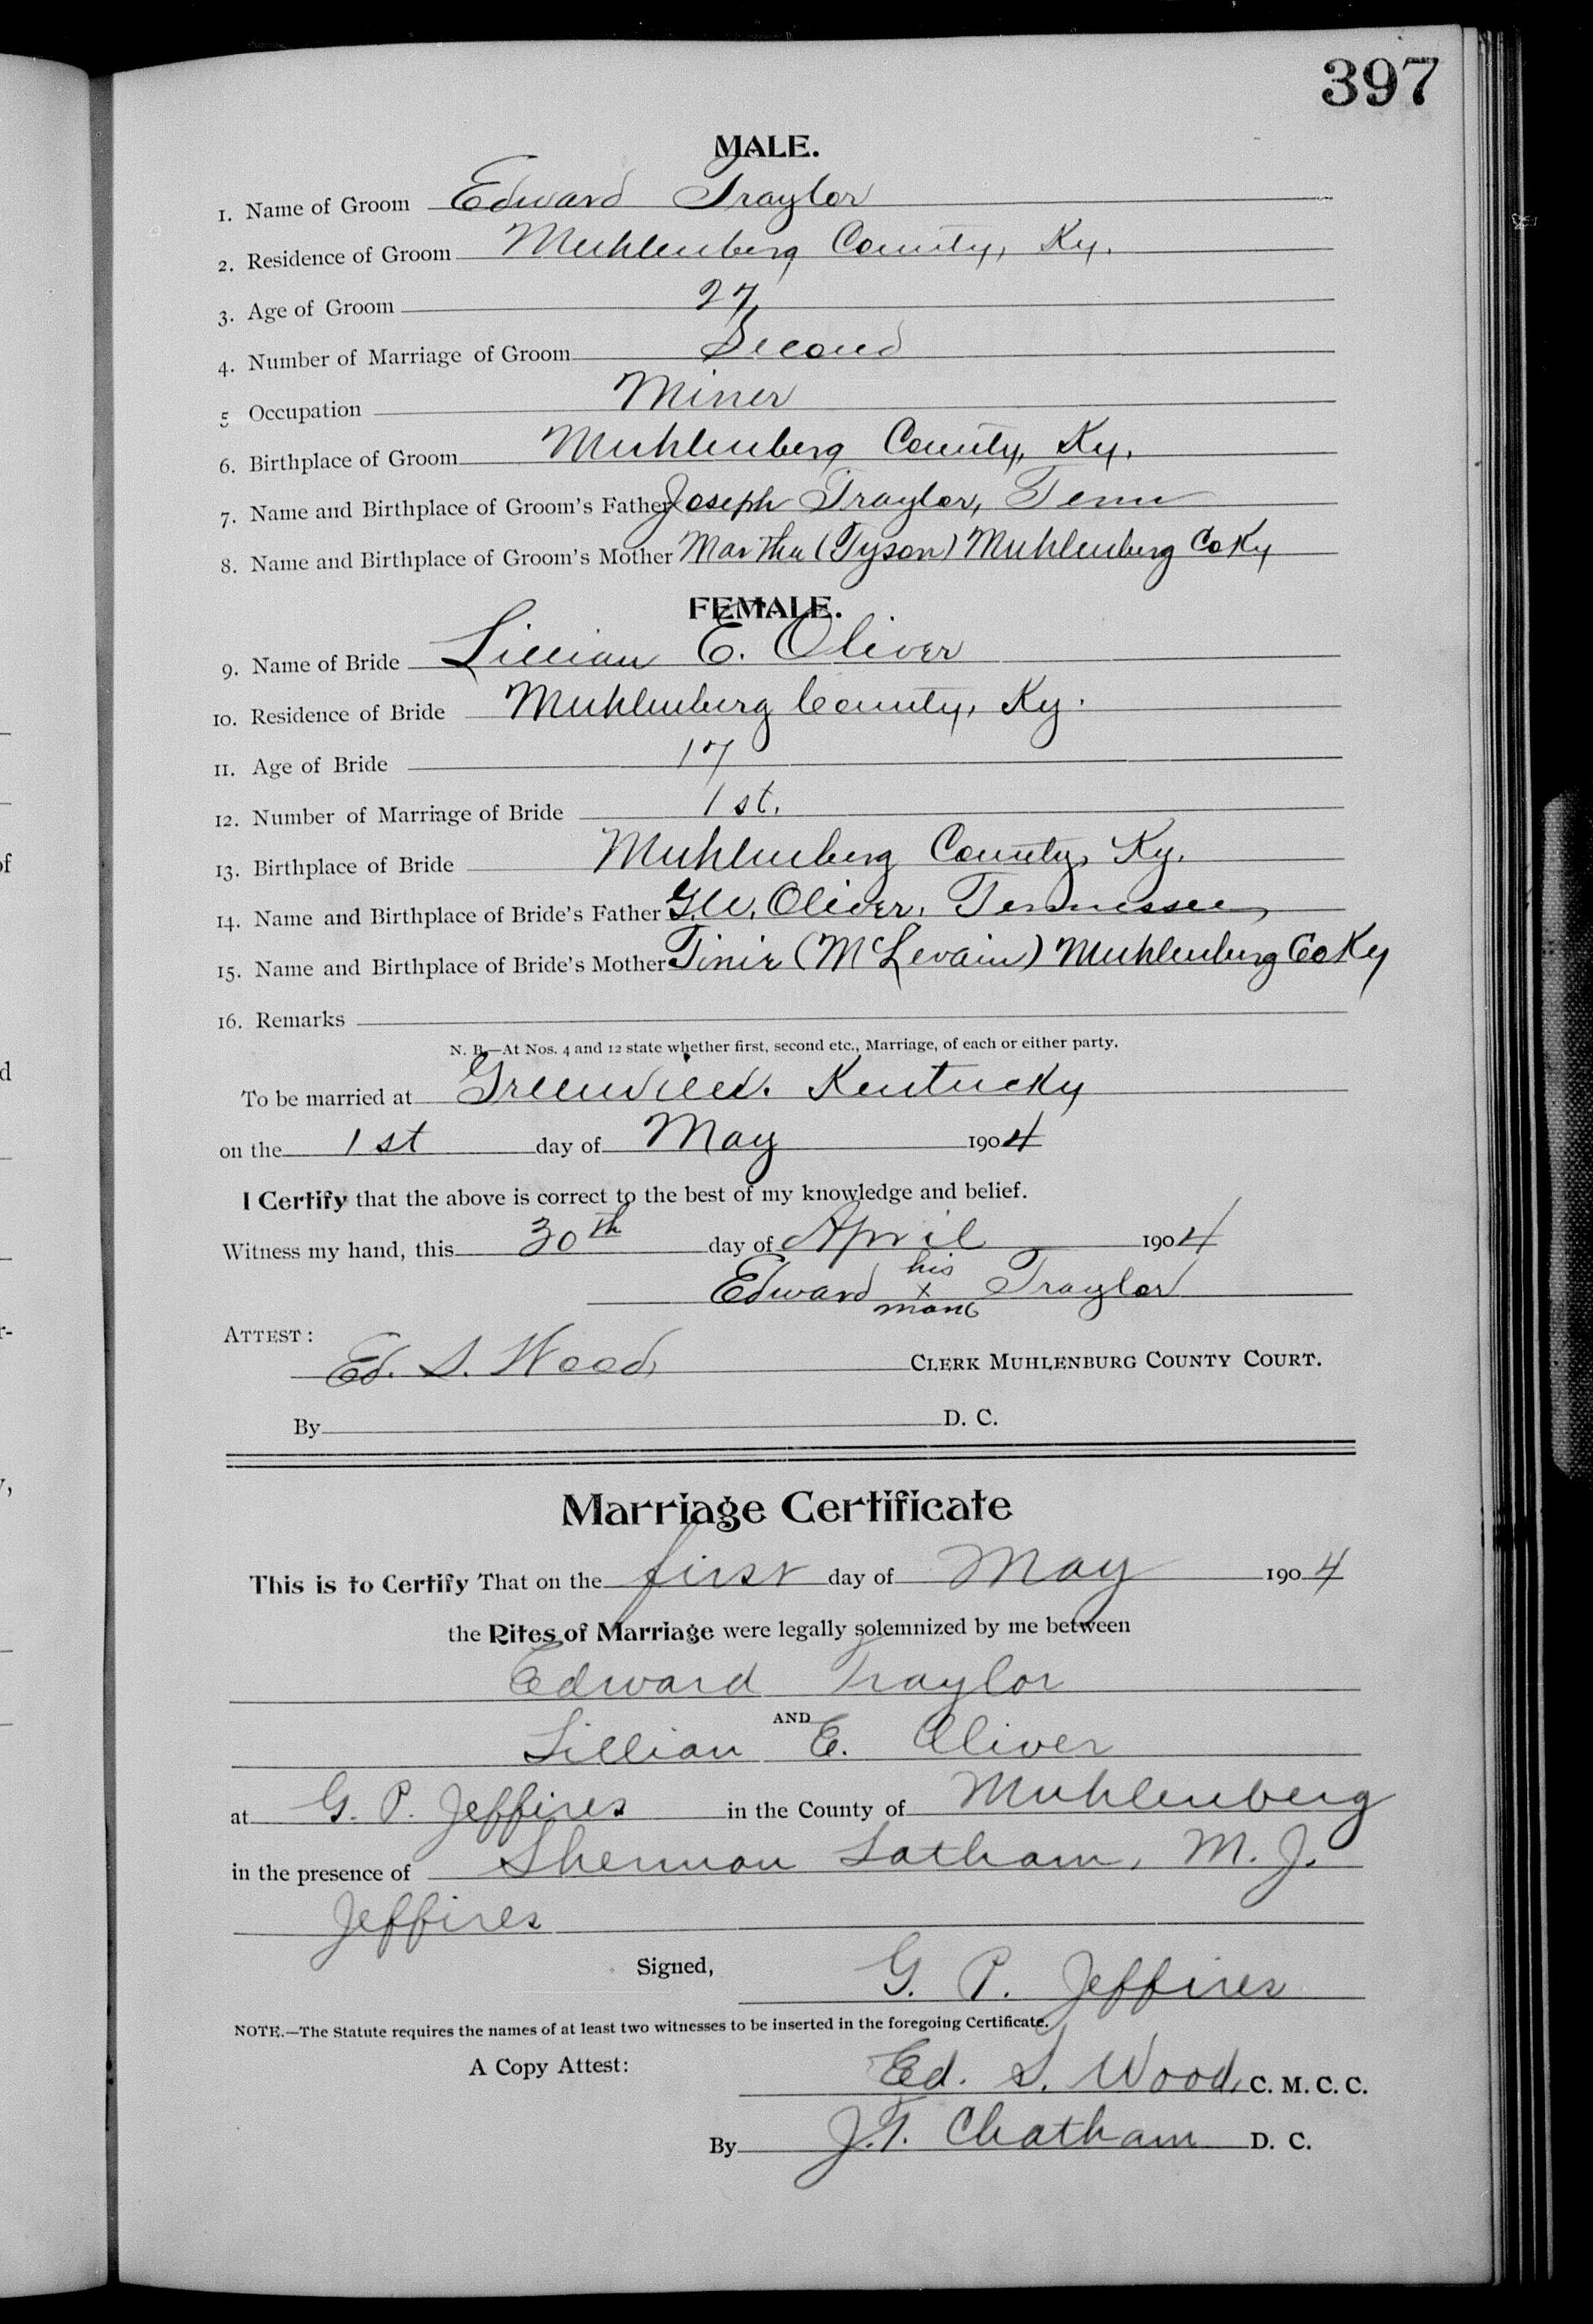 397
MALE.
1. Name of Groom Edward Traylor
2. Residence of Groom Muhlenberg County, Ky.
3. Age of Groom 27
4. Number of Marriage of Groom Second
5 Occupation Miner
6. Birthplace of Groom Muhlenberg County, Ky.
7. Name and Birthplace of Groom's Father Joseph Traylor, Tenn
8. Name and Birthplace of Groom's Mother Martha (Tyson) Muhlenberg Co Ky
FEMALE.
9. Name of Bride Lillian E. Oliver
10. Residence of Bride Muhlenburg County, Ky.
11. Age of Bride 17
12. Number of Marriage of Bride 1st.
13. Birthplace of Bride Muhlenberg County, Ky.
14. Name and Birthplace of Bride's Father G.W. Oliver, Tennessee,
15. Name and Birthplace of Bride's Mother Tinie (McLevain) Muhlenburg Co Ky
16. Remarks
N. B.—At Nos. 4 and 12 state whether first, second etc., Marriage, of each or either party.
To be married at Greenville. Kentucky
on the 1st day of May 1904
I Certify that the above is correct to the best of my knowledge and belief.
Witness my hand, this 30th day of April 1904
his
Edward x Traylor
mark
ATTEST:
Ed. S. Wood, CLERK MUHLENBURG COUNTY COURT.
By D. C.
Marriage Certificate
This is to Certify That on the first day of May 1904
the Rites of Marriage were legally solemnized by me between
Edward Traylor
AND
Lillian E. Oliver
at G. P. Jeffires in the County of Muhlenberg
in the presence of Sherman Latham, M. J.
Jeffires
Signed,
G. P. Jeffires
NOTE.—The Statute requires the names of at least two witnesses to be inserted in the foregoing Certificate.
A Copy Attest:
Ed. S. Wood, C. M. C. C.
By J.T. Chatham D. C.